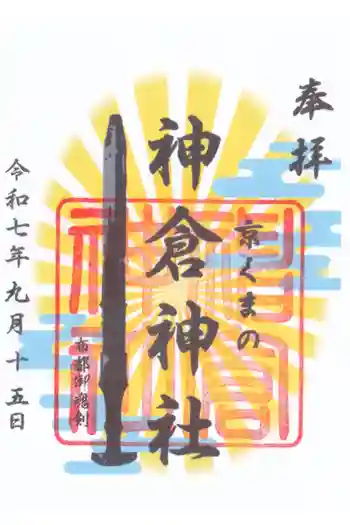 奉拝
京くまの
神倉神社
布都御魂剣
令和七年九月十五日